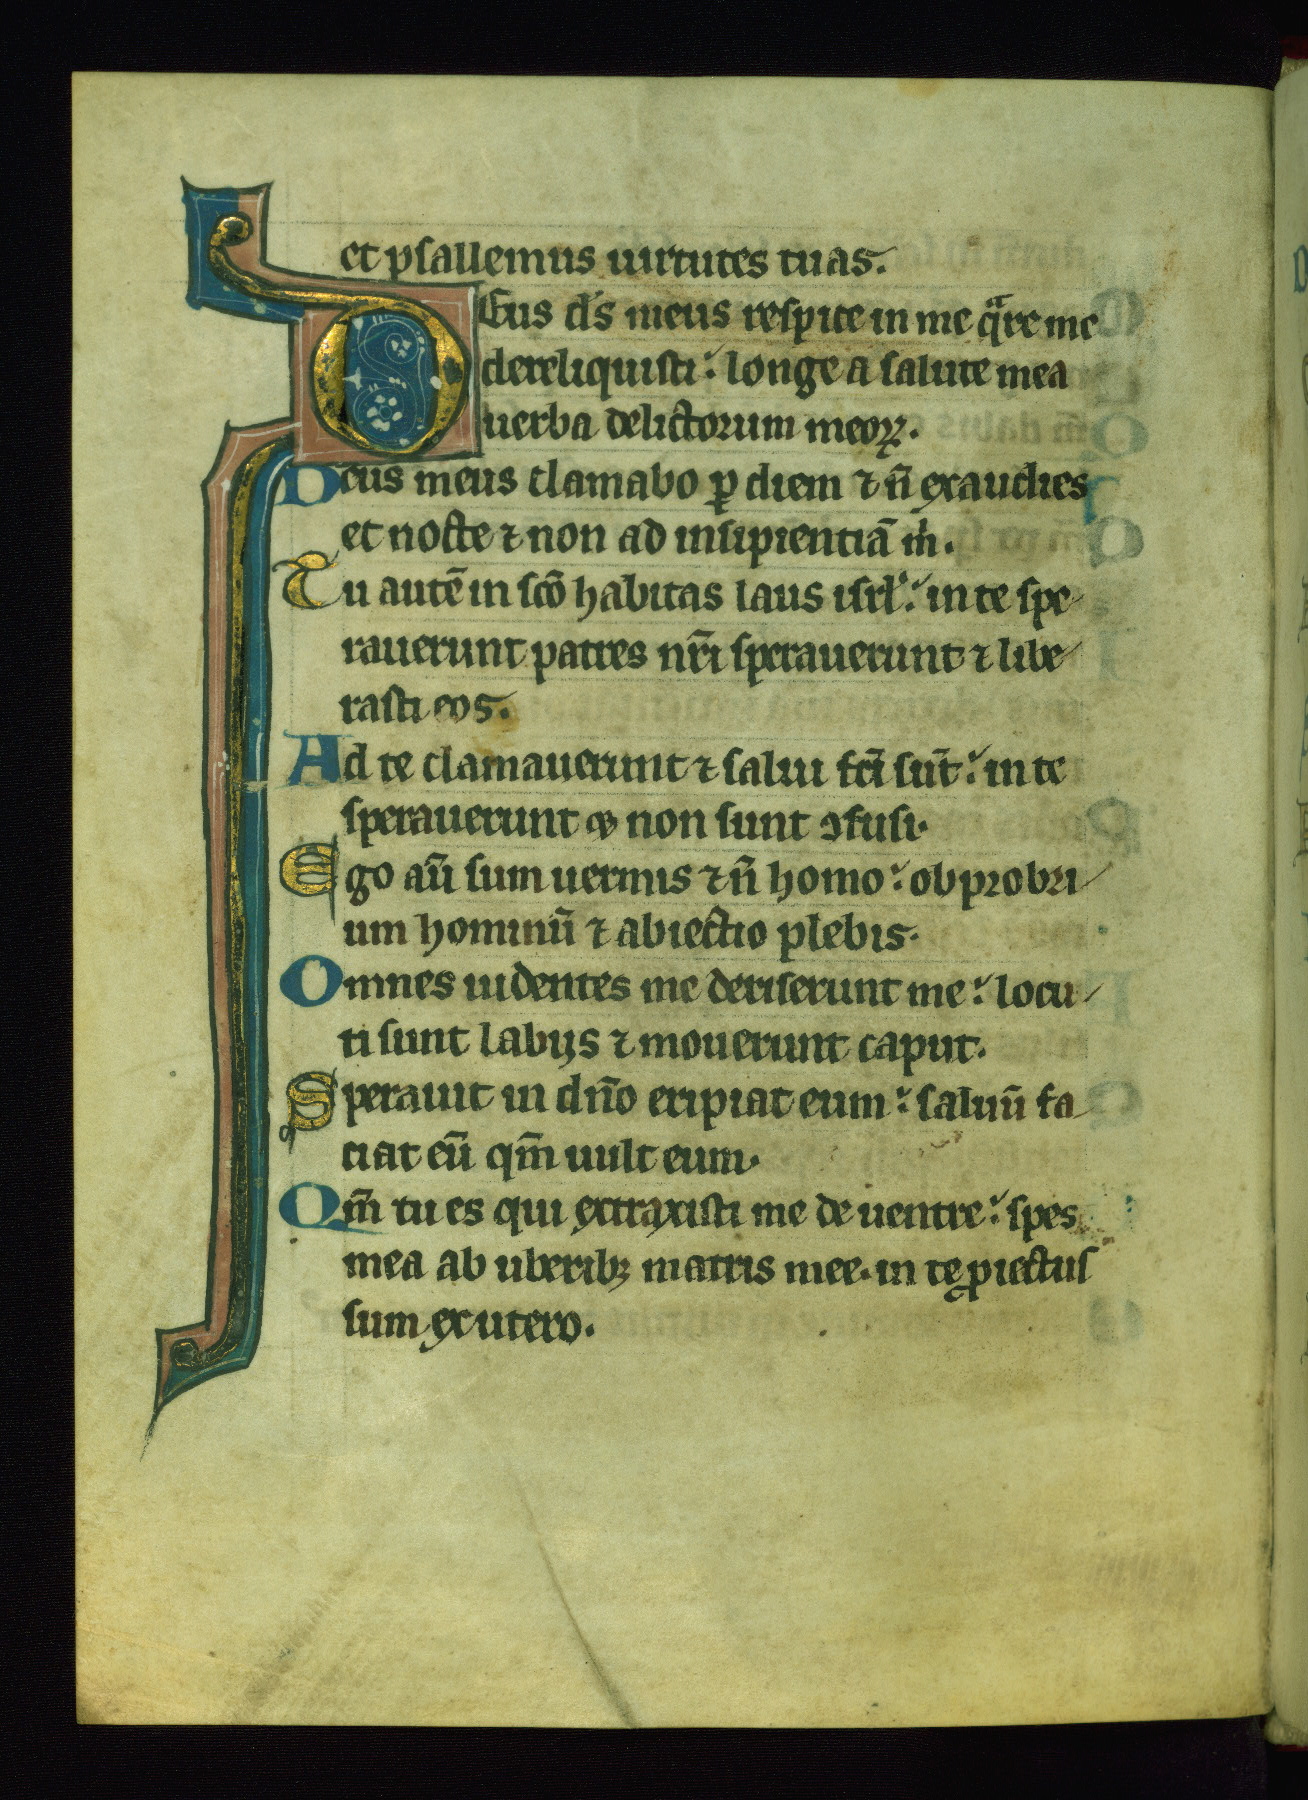 et psallemus uirtutes tuas.
DEus ds̄ meus respice in me qͣre me
dereliquisti: longe a salute mea
uerba delictorum meoꝝ.
Deus meus clamabo ꝑ diem ⁊ n̄ exaudies
et nocte ⁊ non ad insipientiā m̍.
Tu autē in scō habitas laus isrl̓: in te spe
rauerunt patres nr̄i sperauerunt ⁊ libe
rasti eos.
Ad te clamauerunt ⁊ salui fcī sūt: in te
sperauerunt ⁊ non sunt ꝯfusi.
Ego aū sum uermis ⁊ n̄ homo: obprobri
um hominū ⁊ abiectio plebis.
Omnes uidentes me deriserunt me: locu
ti sunt labijs ⁊ mouerunt caput.
Sperauit in dn̄o eripiat eum: saluū fa
ciat eū qm̄ uult eum.
Qm̄ tu es qui extraxisti me de uentre: spes
mea ab uberibꝫ matris mee. in te ꝓiectus
sum ex utero.